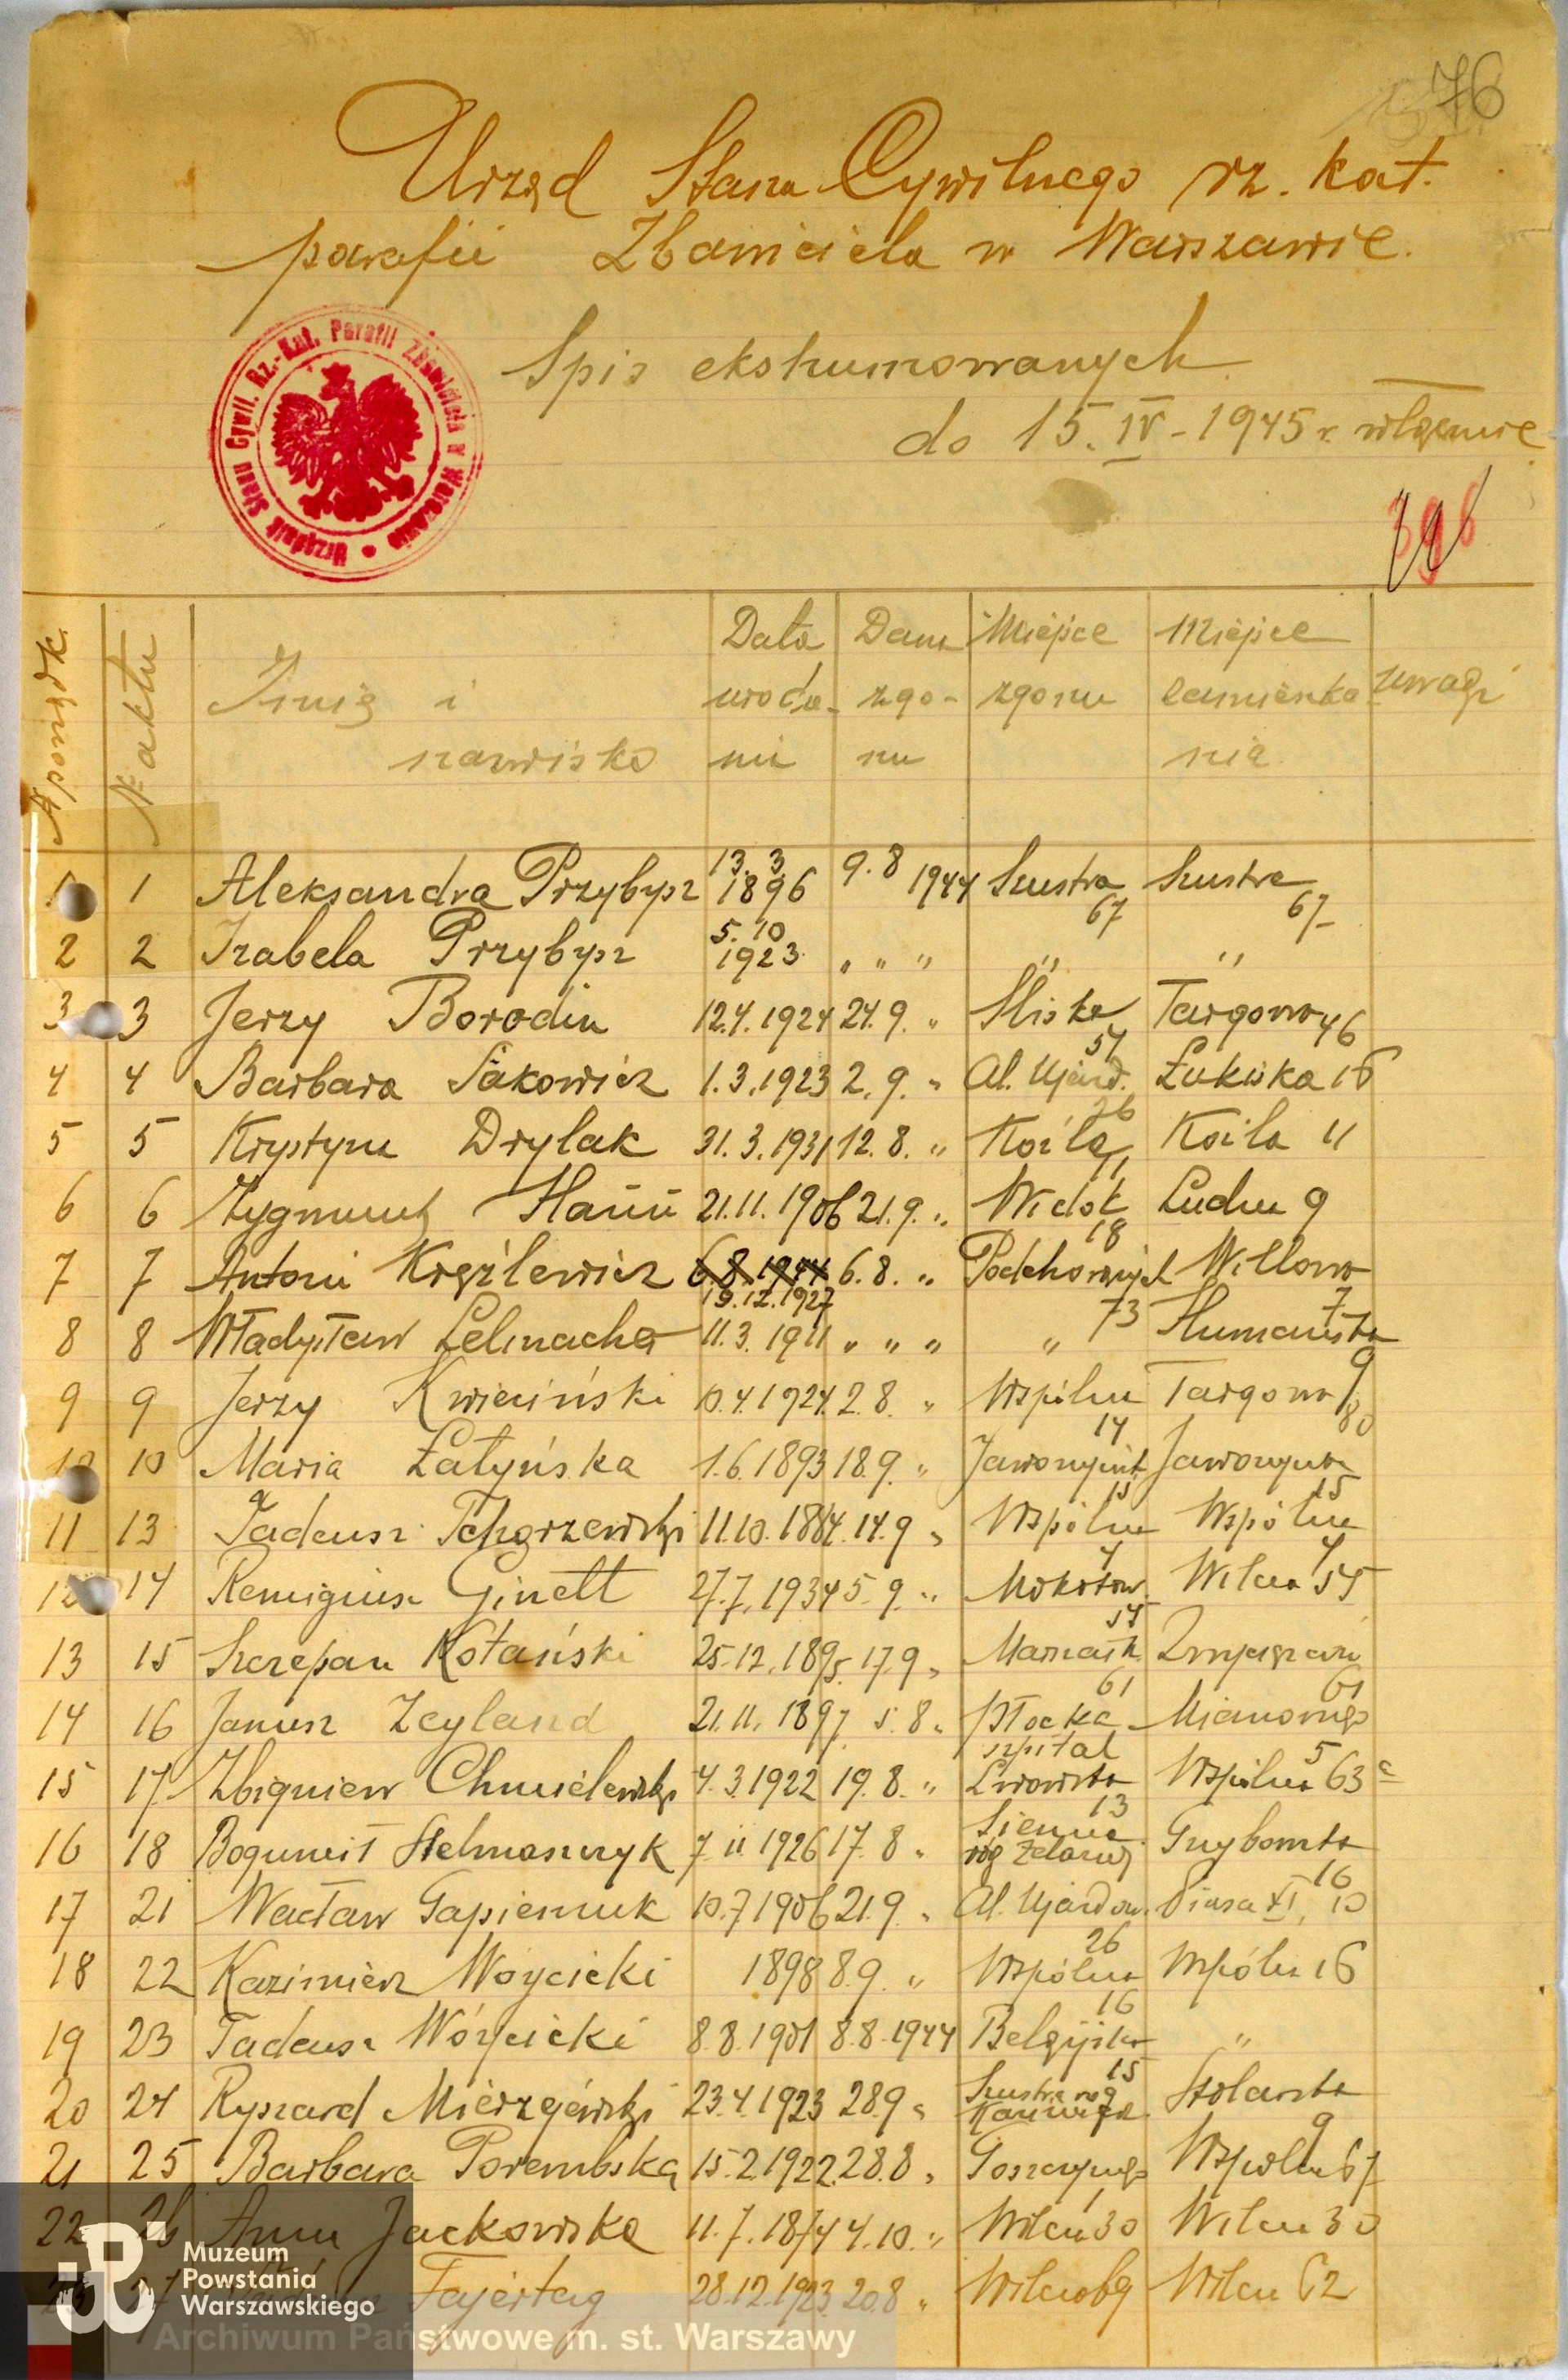 76
Urząd Stanu Cywilnego rz. kat.
parafii Zbawiciela w Warszawie.
Urzędnik Stanu Cywil. Rz.-Kat. Parafii Zbawiciela w Warszawie
Spis ekshumowanych
do 15. IV - 1945 r. włącznie
396
№ porządk. № aktu Imię i nazwisko Data urodze- nia Data zgo- nu Miejsce zgonu Miejsce zamieszka- nia uwagi
1 1 Aleksandra Przybysz 13. 3. 1896 9. 8 1944 Szustra 67 Szustra 67
2 2 Izabela Przybysz 5. 10 1923 " " " " "
3 3 Jerzy Borodin 12.4.1924 24.9. " Śliska 54 Targowa 46
4 4 Barbara Sakowicz 1.3.1923 2.9. " Al. Ujazd. 26 Łukiska 16
5 5 Krystyna Drylak 31.3.1931 12.8. " Koźla 11 Koźla 11
6 6 Zygmunt 21.11.1906 21.9. " Widok 18 Ludna 9
7 7 Antoni 6.8.1944 19.12.1927 6.8. " 73 Willowa 7
8 8 Władysław 11.3.1911 " " " " 9
9 9 Jerzy Kwieciński 10.4.1924 2.8. " Wspólna 14 Targowa 80
10 10 Maria Łatyńska 1.6.1893 18.9. " 15 15
11 13 Tadeusz Tchorzewski 11.10.1884 14.9 " Wspólna 4 Wspólna 4
12 14 Remigiusz Ginett 27.7.1934 5.9. " Mokotow. 55 Wilcza 55
13 15 Szczepan Kotański 25.12.1895 17.9 " Marszałk. 61 61
14 16 Janusz Zeyland 21.11.1897 5.8 " Płocka szpital Mianowskiego 5
15 17 Zbigniew Chmielewski 4.3.1922 19.8. " Lwowska 13 Wspólna 63
16 18 Bogumił Stelmaszczyk 7.11.1926 17.8 " Sienna róg Żelaznej Grzybowska 16
17 21 Wacław Gapieniuk 10.7.1906 21.9 " Al. Ujazdow. 26 Piusa XI, 10
18 22 Kazimierz Wóycicki 1898 8.9. " Wspólna 16 Wspólna 16
19 23 Tadeusz Wóycicki 8.8.1901 8.8.1944 Belgijska 15 "
20 24 Ryszard Mierzejewski 23.4.1923 28.9 " Szustra róg Kazimierz. Stolarska 9
21 25 Barbara Porembska 15.2.1922 28.8 " Goszczyńskiego Wspólna 67
22 26 Anna Jackowska 11.7.1874 4.10. " Wilcza 30 Wilcza 30
23 27 Fajertag 28.12.1923 20.8 " Wilcza 69 Wilcza 62
Muzeum
Powstania
Warszawskiego
Archiwum Państwowe m. st. Warszawy